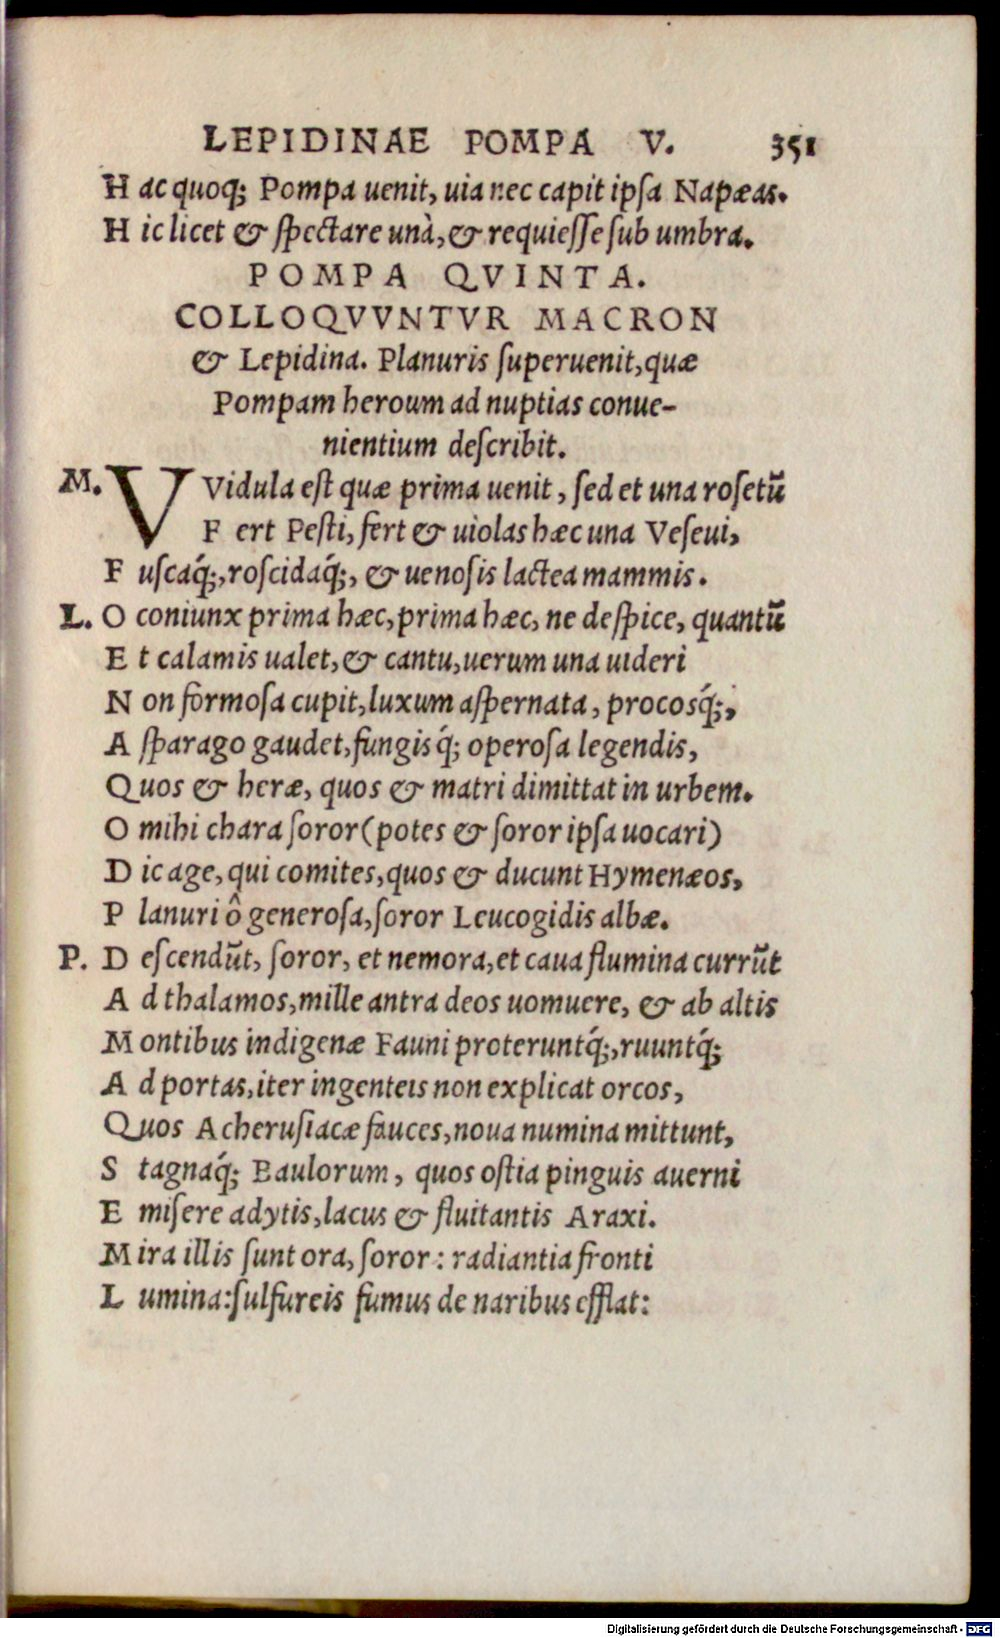 LEPIDINAE POMPA V. 351
H ac quoq; Pompa uenit, uia nec capit ipsa Napæas.
H ic licet & spectare unà, & requiesse sub umbra.
POMPA QVINTA.
COLLOQVVNTVR MACRON
& Lepidina. Planuris superuenit, quæ
Pompam heroum ad nuptias conue-
nientium describit.
M. VVidula est quæ prima uenit, sed et una rosetũ
F ert Pesti, fert & uiolas hæc una Veseui,
F uscaq́;, roscidaq́;, & uenosis lactea mammis.
L. O coniunx prima hæc, prima hæc, ne despice, quantũ
E t calamis ualet, & cantu, uerum una uideri
N on formosa cupit, luxum aspernata, procosq́;,
A sparago gaudet, fungisq́; operosa legendis,
Quos & heræ, quos & matri dimittat in urbem.
O mihi chara soror (potes & soror ipsa uocari)
D ic age, qui comites, quos & ducunt Hymenæos,
P lanuri ô generosa, soror Leucogidis albæ.
P. D escendũt, soror, et nemora, et caua flumina currũt
A d thalamos, mille antra deos uomuere, & ab altis
M ontibus indigenæ Fauni proteruntq́;, ruuntq́;
A d portas, iter ingenteis non explicat orcos,
Quos Acherusiacæ fauces, noua numina mittunt,
S tagnaq́; Baulorum, quos ostia pinguis auerni
E misere adytis, lacus & fluitantis Araxi.
M ira illis sunt ora, soror: radiantia fronti
L umina: sulfureis fumus de naribus efflat:
Digitalisierung gefördert durch die Deutsche Forschungsgemeinschaft - DFG